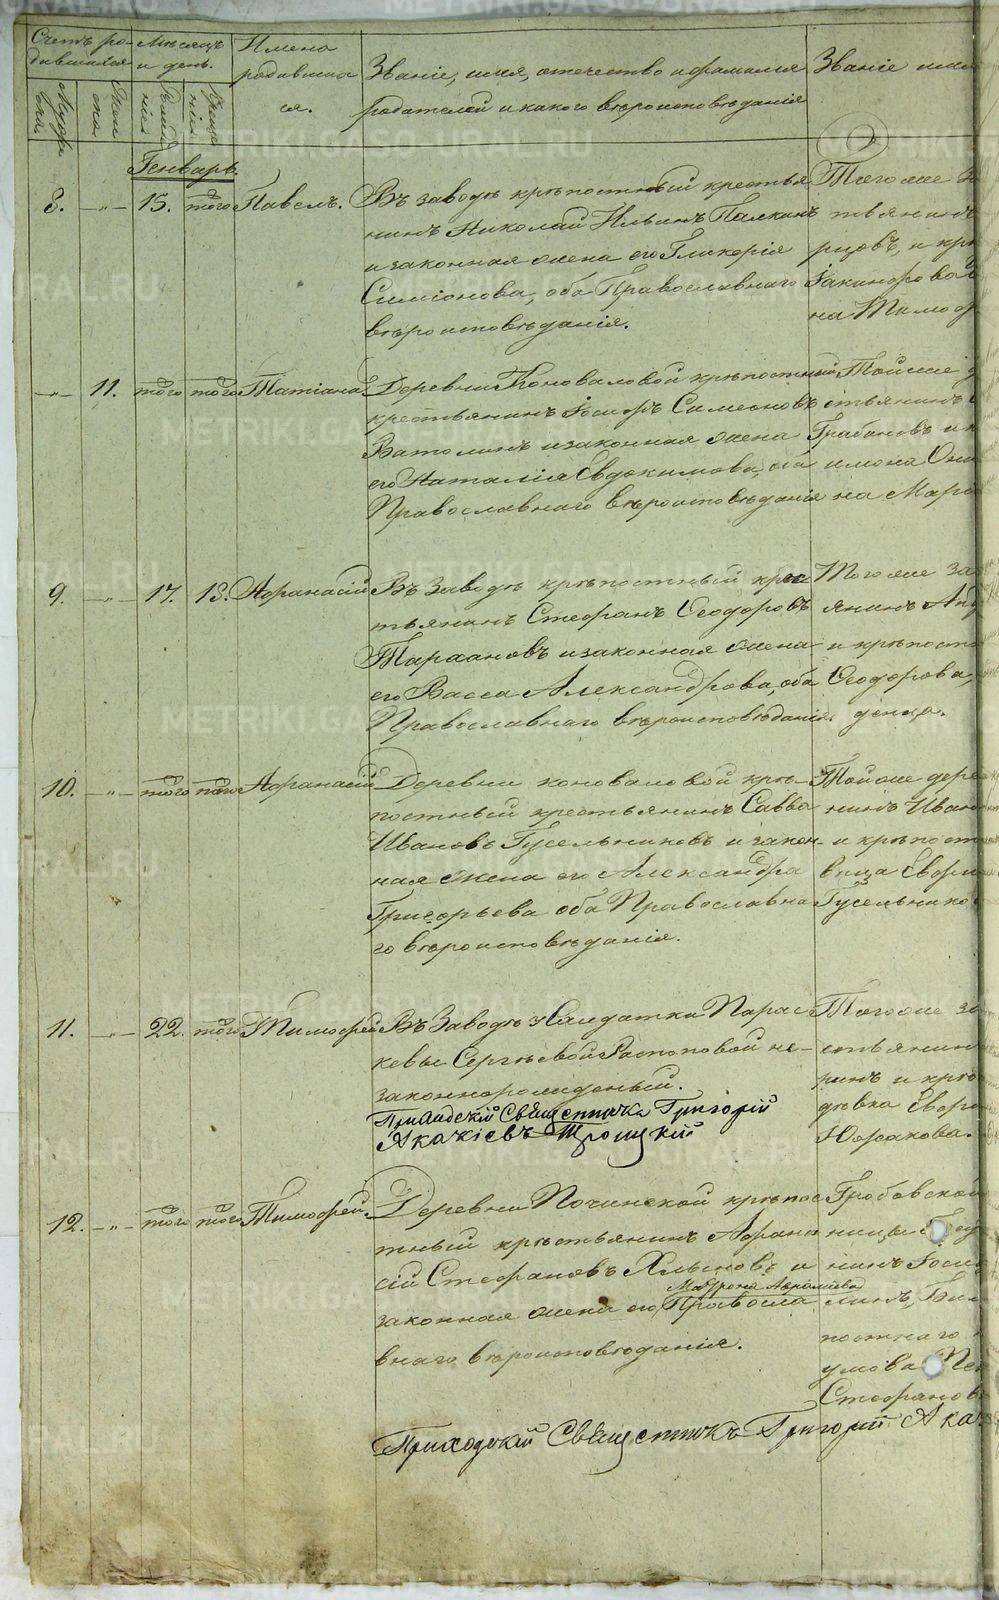 Счетъ ро-
дившихся
Мѣсяцъ
и день.
Имена
родивших
ся.
Званіе, имя, отечество и фамилія
родителей и какого вѣроисповѣданія
Званіе имя
Муже
ска.
Жен
ска.
Рожде
нія
Креще
нія
Генварь.
8. — „ — 15. того Павелъ.
Въ заводѣ крѣпостный крестья
нинъ Николай Ильинъ Палкинъ
и законная жена его Гликерія
Симіонова, оба Православнаго
вѣроисповѣданія.
Того же за
тьянинъ
и крѣ
на Тимоф
— „ — 11. того того Татіана
Деревни Коноваловой крѣпостный
крестьянинъ Іосифъ Симеоновъ
Ватолинъ и законная жена
его Наталія Евдокимова, оба
Православнаго вѣроисповѣданія
Той же д
стьянинъ
Грабановъ и к
на Мар
9. — „ — 17. 18. Афанасій
Въ Заводѣ крѣпостный крес
тьянинъ Стефанъ Ѳеодоровъ
и законная жена
его Васса Александрова, оба
Православнаго вѣроисповѣданія.
Того же за
янинъ Анд
и крѣпостн
Ѳеодорова,
10. — „ — того того Афанасій
Деревни Коноваловой крѣ-
постный крестьянинъ Савва
Ивановъ Гусельниковъ и закон-
ная жена его Александра
Григорьева оба Православна
го вѣроисповѣданія.
Той же дере
нинъ Иван
и крѣпост
вица Евфи
Гусельнико
11. — „ — 22. того Тимофей
Въ Заводѣ у Солдатки Парас-
кевы Сергѣевой Распоповой не-
законнорожденный.
Приходскій Священникъ Григорій
Акакіевъ Троицкій
Того же за
стьянин
ринъ и крѣ
дѣвка Евфр
Юфракова.
12. — „ — того того Тимофей.
Деревни Починской крѣпос
тный крѣстьянинъ Афана
сій Стефановъ Хлыновъ и
Матрона Авраміева
законная жена его, Правосла
внаго вѣроисповѣданія.
Гробовской
ницы
нинъ Іоси
линъ,
постнаго
умова
Стефанов
Приходскій Священникъ Григорій Ака
METRIKI.GASO-URAL.RU